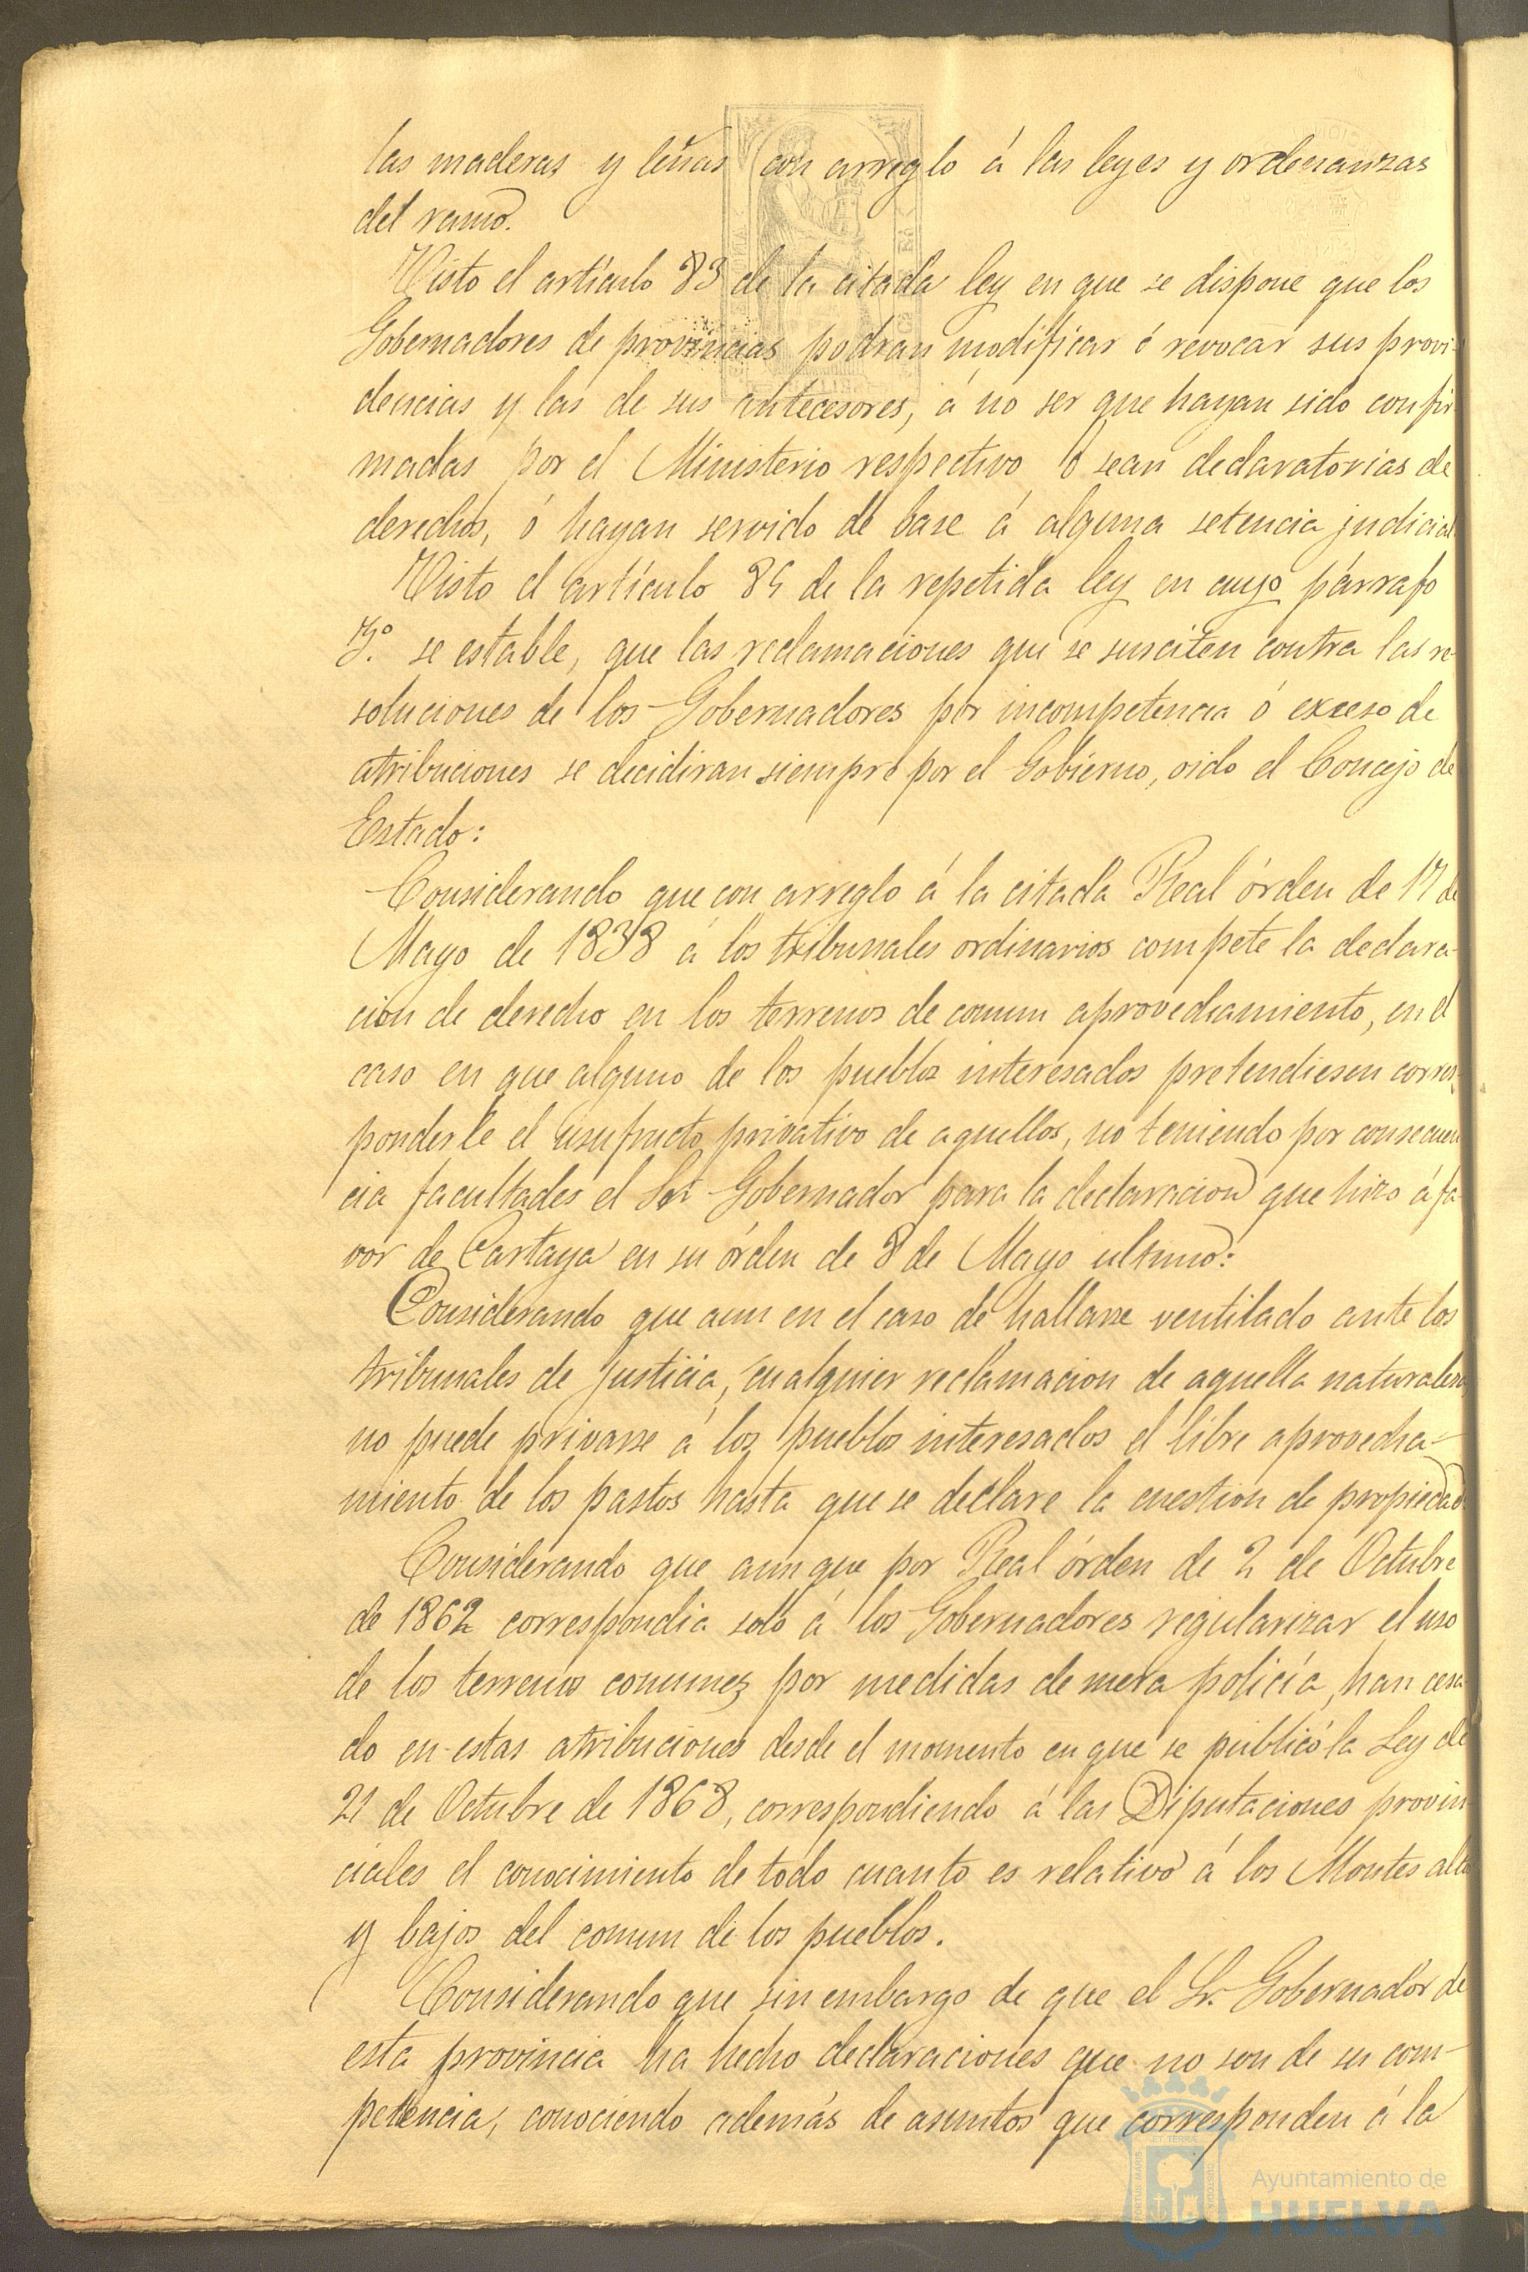 las maderas y leñas con arreglo á las leyes y ordenanzas
del ramo.
Visto el artículo 83 de la citada ley en que se dispone que los
Gobernadores de provincias podran modificar ó revocar sus provi-
dencias y las de sus antecesores, á no ser que hayan sido confir
madas por el Ministerio respectivo ó sean declaratorias de
derechos, ó hayan servido de base á alguna setencia judicial
Visto el artículo 85 de la repetida ley en cuyo párrafo
3º. se estable, que las reclamaciones que se susciten contra las re
soluciones de los Gobernadores por incompetencia ó exceso de
atribuciones se decidiran siempre por el Gobierno, oido el Concejo de
Estado:
Considerando que con arreglo á la citada Real órden de 17 de
Mayo de 1838 á los tribunales ordinarios compete la declara-
cion de derecho en los terrenos de comun aprovechamiento, en el
caso en que alguno de los pueblos interesados pretendiesen corres-
ponderle el usufructo privativo de aquellos, no teniendo por consecuen
cia facultades el Sor Gobernador para la declaracion que hizo á fa
vor de Cartaya en su órden de 8 de Mayo ultimo:
Considerando que aun en el caso de hallarse ventilado ante los
tribunales de Justicia, cualquier reclamacion de aquella naturaleza
no puede privarse á los pueblos interesados el libre aprovecha-
miento de los pastos hasta que se declare la cuestion de propiedad
Considerando que aunque por Real órden de 2 de Octubre
de 1862 correspondia solo á los Gobernadores regularizar el uso
de los terrenos comunes por medidas de mera policía, han cesa
do en estas atribuciones desde el momento en que se publicó la Ley de
21 de Octubre de 1868, correspondiendo á las Diputaciones provin-
ciales el conocimiento de todo cuanto es relativo á los Montes altos
y bajos del comun de los pueblos.
Considerando que sin embargo de que el Sr. Gobernador de
esta provincia ha hecho declaraciones que no son de su com-
petencia, conociendo además de asuntos que corresponden á la
Ayuntamiento de
HUELVA